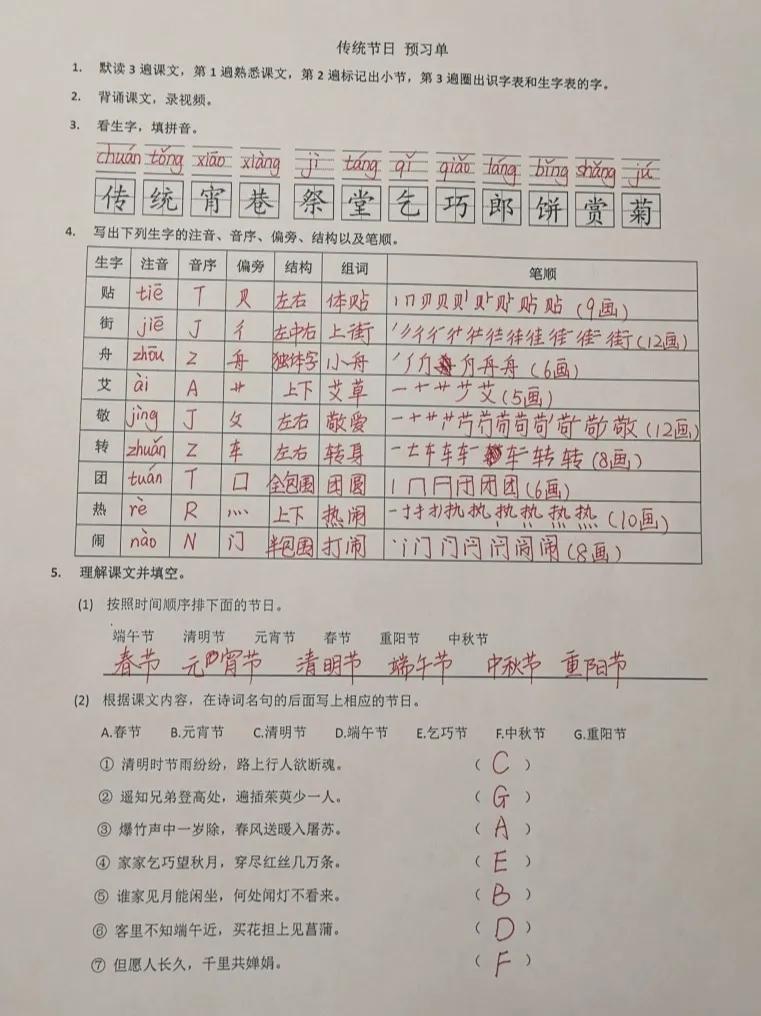 传统节日 预习单
1. 默读 3 遍课文，第 1 遍熟悉课文，第 2 遍标记出小节，第 3 遍圈出识字表和生字表的字。
2. 背诵课文，录视频。
3. 看生字，填拼音。
chuán tǒng xiāo xiàng jì táng qǐ qiǎo láng bǐng shǎng jú
传 统 宵 巷 祭 堂 乞 巧 郎 饼 赏 菊
4. 写出下列生字的注音、音序、偏旁、结构以及笔顺。
生字 注音 音序 偏旁 结构 组词 笔顺
贴 tiē T 贝 左右 体贴 (9画)
街 jiē J 彳 左中右 上街 (12画)
舟 zhōu Z 舟 独体字 小舟 (6画)
艾 ài A 艹 上下 艾草 (5画)
敬 jìng J 攵 左右 敬爱 (12画)
转 zhuǎn Z 车 左右 转身 (8画)
团 tuán T 囗 全包围 团圆 (6画)
热 rè R 灬 上下 热闹 (10画)
闹 nào N 门 半包围 打闹 (8画)
5. 理解课文并填空。
(1) 按照时间顺序排下面的节日。
端午节 清明节 元宵节 春节 重阳节 中秋节
春节 元宵节 清明节 端午节 中秋节 重阳节
(2) 根据课文内容，在诗词名句的后面写上相应的节日。
A.春节 B.元宵节 C.清明节 D.端午节 E.乞巧节 F.中秋节 G.重阳节
① 清明时节雨纷纷，路上行人欲断魂。 （ C ）
② 遥知兄弟登高处，遍插茱萸少一人。 （ G ）
③ 爆竹声中一岁除，春风送暖入屠苏。 （ A ）
④ 家家乞巧望秋月，穿尽红丝几万条。 （ E ）
⑤ 谁家见月能闲坐，何处闻灯不看来。 （ B ）
⑥ 客里不知端午近，买花担上见菖蒲。 （ D ）
⑦ 但愿人长久，千里共婵娟。 （ F ）